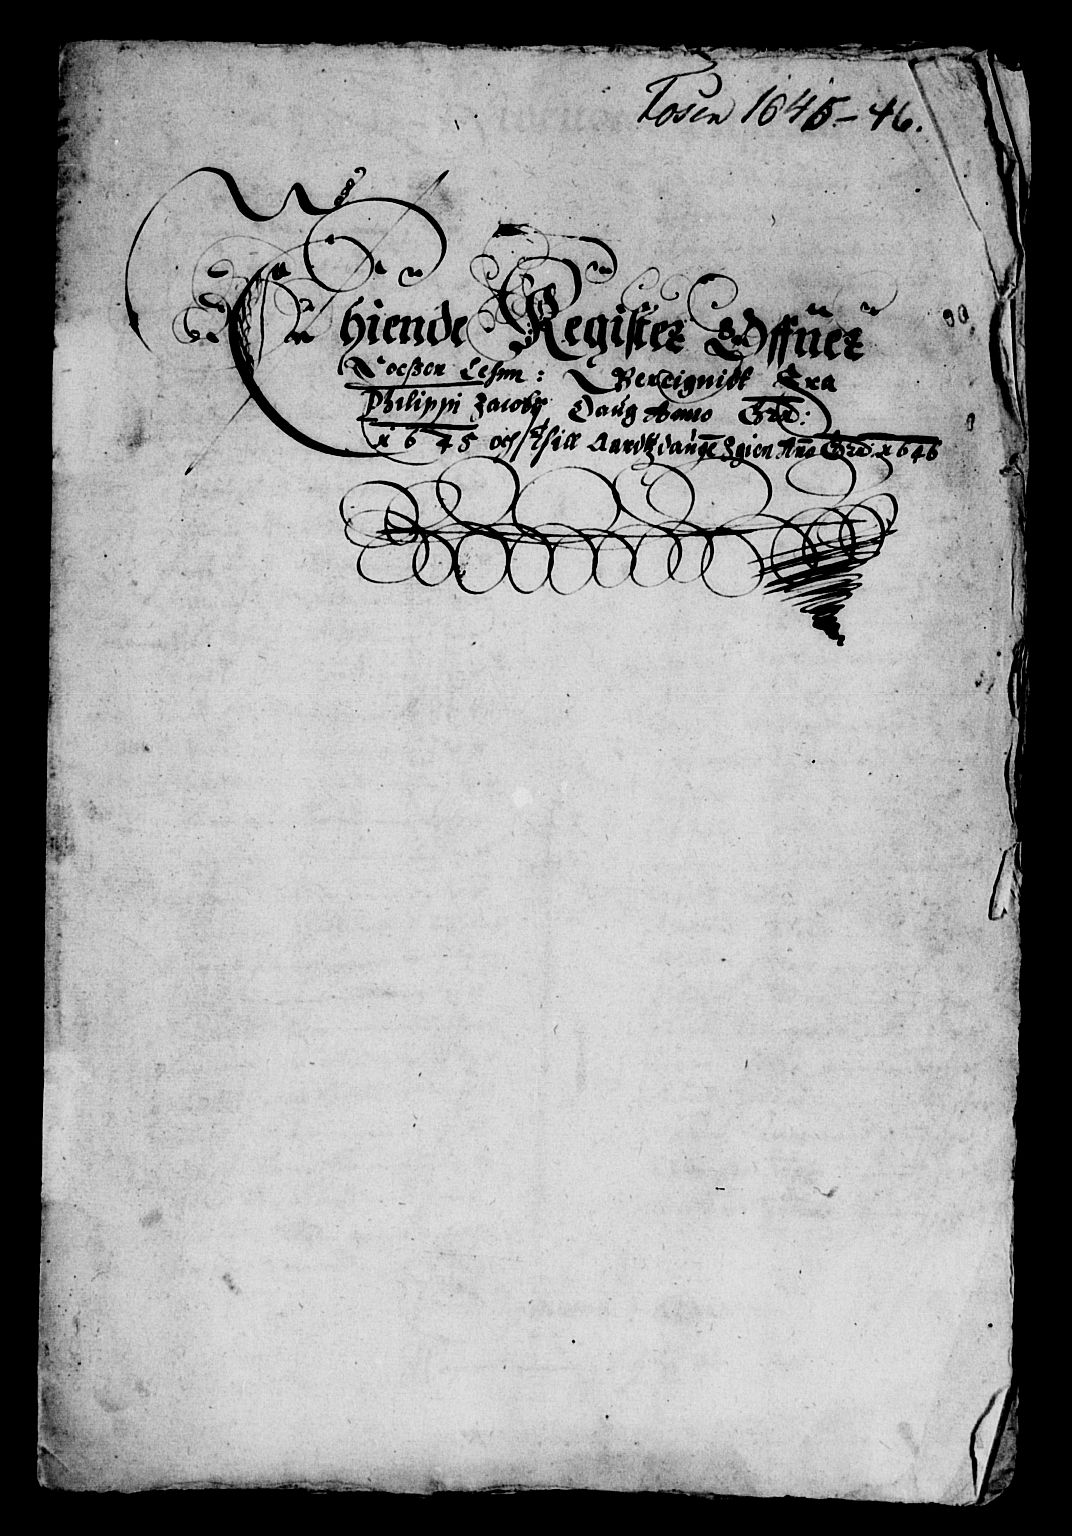 Tosen 1645–46.
Thiende Register Offuer
Toeßen Lehnn: Bereignidt Fra
Philippi Jacobj Daug Anno Ete:
1645 och Thill Aarßdaugē Igien Año Ete: 1646